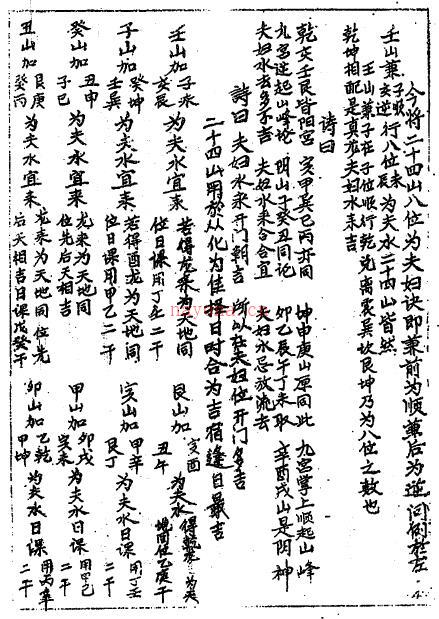 今将二十四山八位为夫妇诀即兼前为顺兼后为逆问例在左
壬山兼子收玄逆行八位未辰为夫水二十四山皆然
壬山兼子在子位顺行乾兑离震巽坎艮坤乃为八位之数也
乾坤相配是真龙夫妇水来吉
詩曰
乾交壬艮皆阳宮 亥甲巽巳丙亦同 坤申庚山原同此 九宮掌上顺起山峰
九宮逆起山峰论 阴山子癸丑同论 卯乙辰午丁未取 辛酉戌山是阴神
夫妇水去多不吉 夫妇水来合合宜 夫妇水忌放流去
詩曰 夫妇水永开门朝吉 所以在夫妇位开门多吉
二十四山用於从化为佳择日时合为吉宿逢日最吉
壬山加子水癸辰为夫水宜来 若得龙来为天地同位日课用丁壬二干
子山加癸坤壬巽为夫水宜来 若得酉龙为天地同位日课用甲乙二干
癸山加丑申子巳为夫水宜来 龙来为天地同位先后天相吉
丑山加艮庚癸丙为夫水宜来 龙来为天地同位先后天相吉日课戊癸干
艮山加寅酉丑午为夫水得龙为夫地同位乙庚干
寅山加甲辛艮丁为夫水日课用丁壬二干
甲山加卯戌寅未为夫水日课用甲己二干
卯山加乙乾甲坤为夫水日课用丙辛二干
nayona.cn